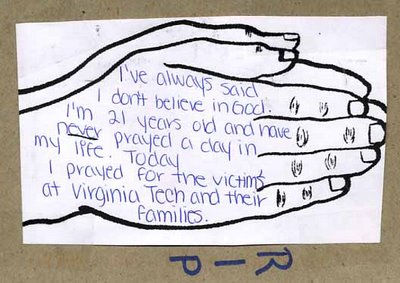 I've always said
I don't believe in God.
I'm 21 years old and have
never prayed a day in
my life. Today
I prayed for the victims
at Virginia Tech and their
families.
RIP